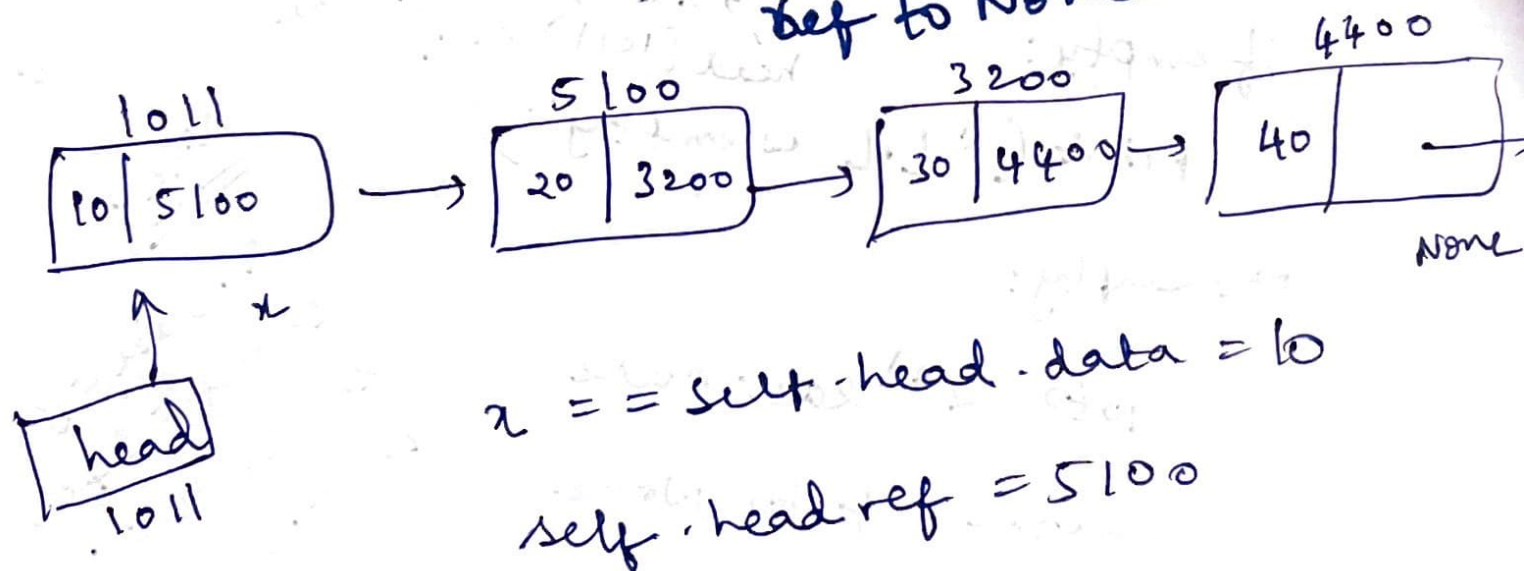 ref to None
1011 5100 3200 4400
10 5100 20 3200 30 4400 40
None
x
head
1011
x == self.head.data = 10
self.head ref = 5100